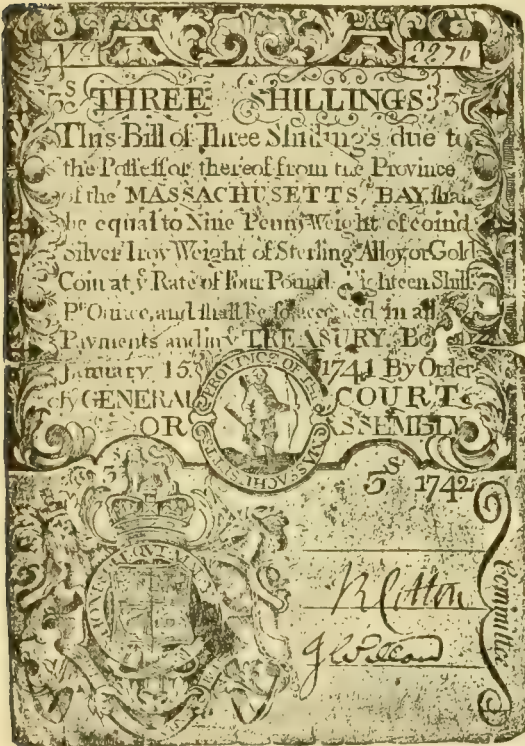 No 2276
3S THREE SHILLINGS 3S
This Bill of Three Shillings due to
the Possessor thereof from the Province
of the MASSACHUSETTS BAY shall
be equal to Nine Penny Weight of coind
Silver Troy Weight of Sterling Alloy or Gold
Coin at ye Rate of Four Pounds Eighteen Shills
Pr Ounce, and shall be so accepted in all
Payments and in ye TREASURY. Boston
January 15 1741 By Order
of ye GENERAL COURT
OR ASSEMBLY
PROVINCE OF THE MASSACHUSETTS
3S 1742
HONI SOIT QUI MAL
Committee